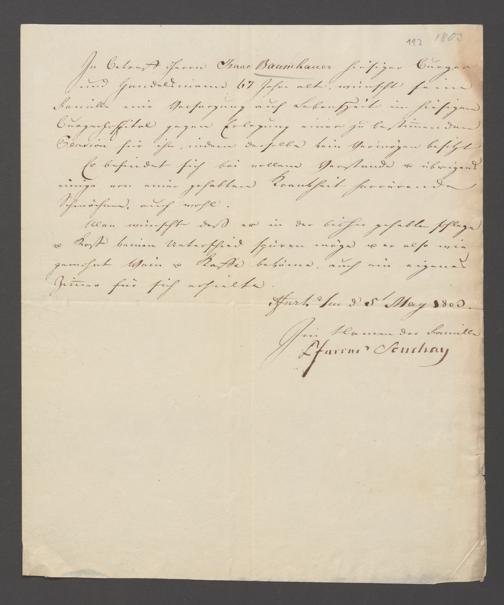 112 1803
In betreff Herrn Isaac Baumhauer hiesiger Burger
und Handelsmann 67 Jahr alt, wünscht seine
Familie eine Versorgung auf Lebenszeit im hiesigen
Burgerhospital gegen Erlegung einer zu bestimmenden
Pension für ihn, indem derselbe kein Vermögen besitzt
Er befindet sich bei vollem Verstande u übrigens
einige von einer gehabten Krankheit herrürende
Schwäche, auch wohl.
Man wünschte daß er in der bisher gehabten
u Kost keinen Unterschied spüren möge u er also wie
gewohnt Wein u Kaffe bekäme, auch ein eigenes
Zimmer für sich erhielte.
d 5t May 1803.
Im Namen der Familie
Souchay